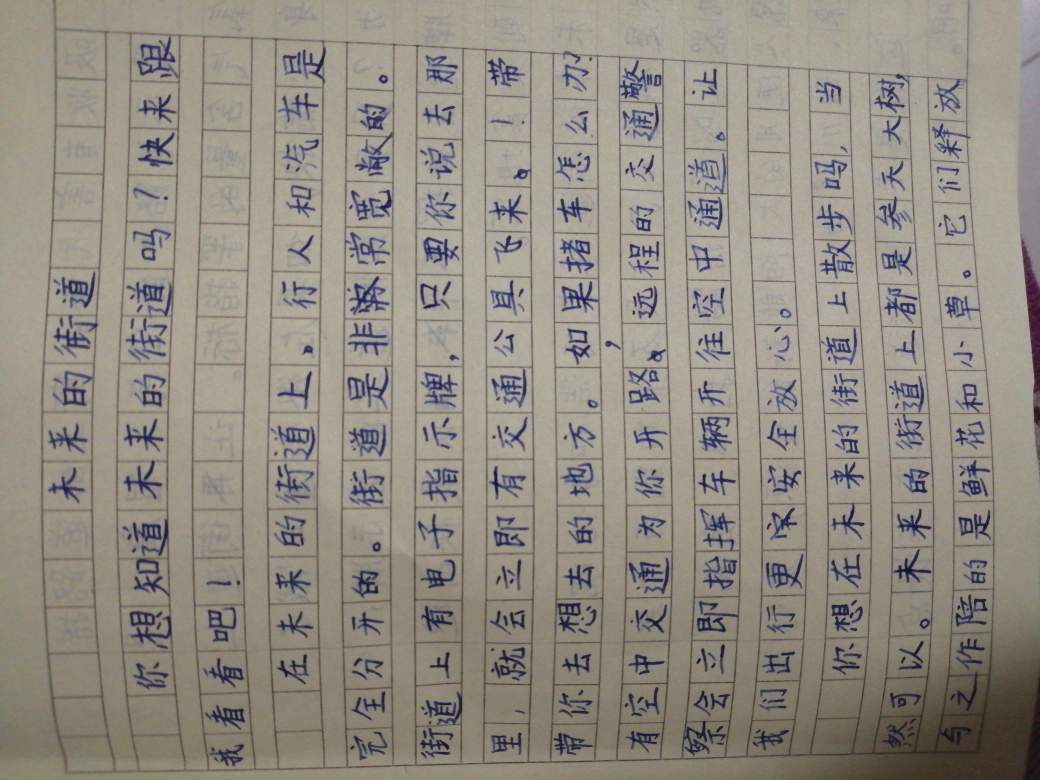 未来的街道
你想知道未来的街道吗?快来跟
我看看吧!
在未来的街道上。行人和汽车是
完全分开的。街道是非常宽敞的。
街道上有电子指示牌,只要你说去那
里,就会立即有交通公具飞来。!带
带你去想去的地方。如果堵车怎么办?
有空中交通为你开路。,远程的交通警
察会立即指挥车辆开往空中通道。让
我们出行更安全放心。
你想在未来的街道上散步吗,当
然可以。未来的街道上都是参天大树,
与之作陪的是鲜花和小草。它们释放